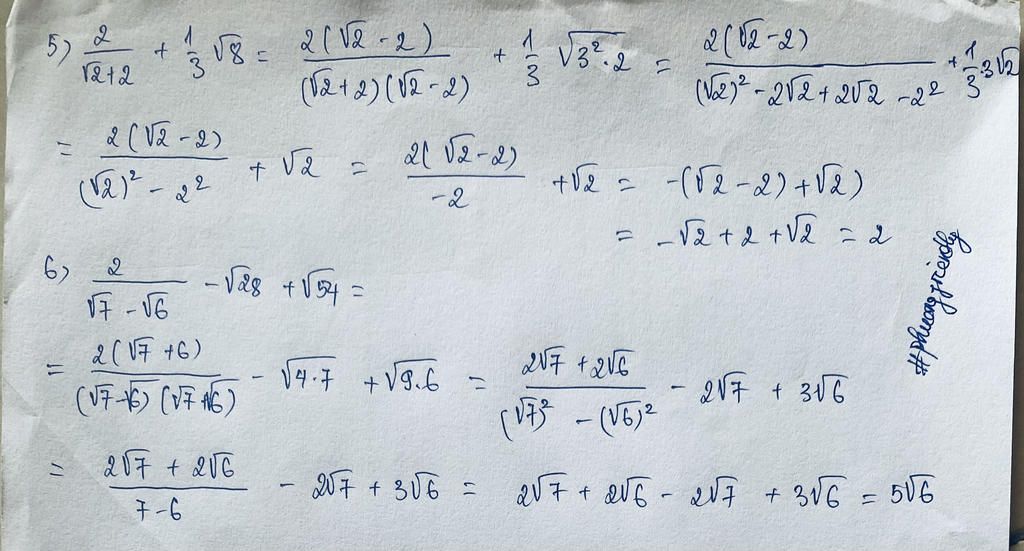 5) 2/(√2+2) + 1/3 √8 = 2(√2 - 2)/((√2+2)(√2-2)) + 1/3 √(3²·2) = 2(√2-2)/((√2)² - 2√2 + 2√2 - 2²) + 1/3·3√2
= 2(√2 - 2)/((√2)² - 2²) + √2 = 2(√2-2)/(-2) + √2 = -(√2 - 2) + √2)
= -√2 + 2 + √2 = 2
6) 2/(√7 - √6) - √28 + √54 =
= 2(√7 + 6)/((√7-√6)(√7+√6)) - √(4·7) + √(9·6) = (2√7 + 2√6)/((√7)² - (√6)²) - 2√7 + 3√6
= (2√7 + 2√6)/(7-6) - 2√7 + 3√6 = 2√7 + 2√6 - 2√7 + 3√6 = 5√6